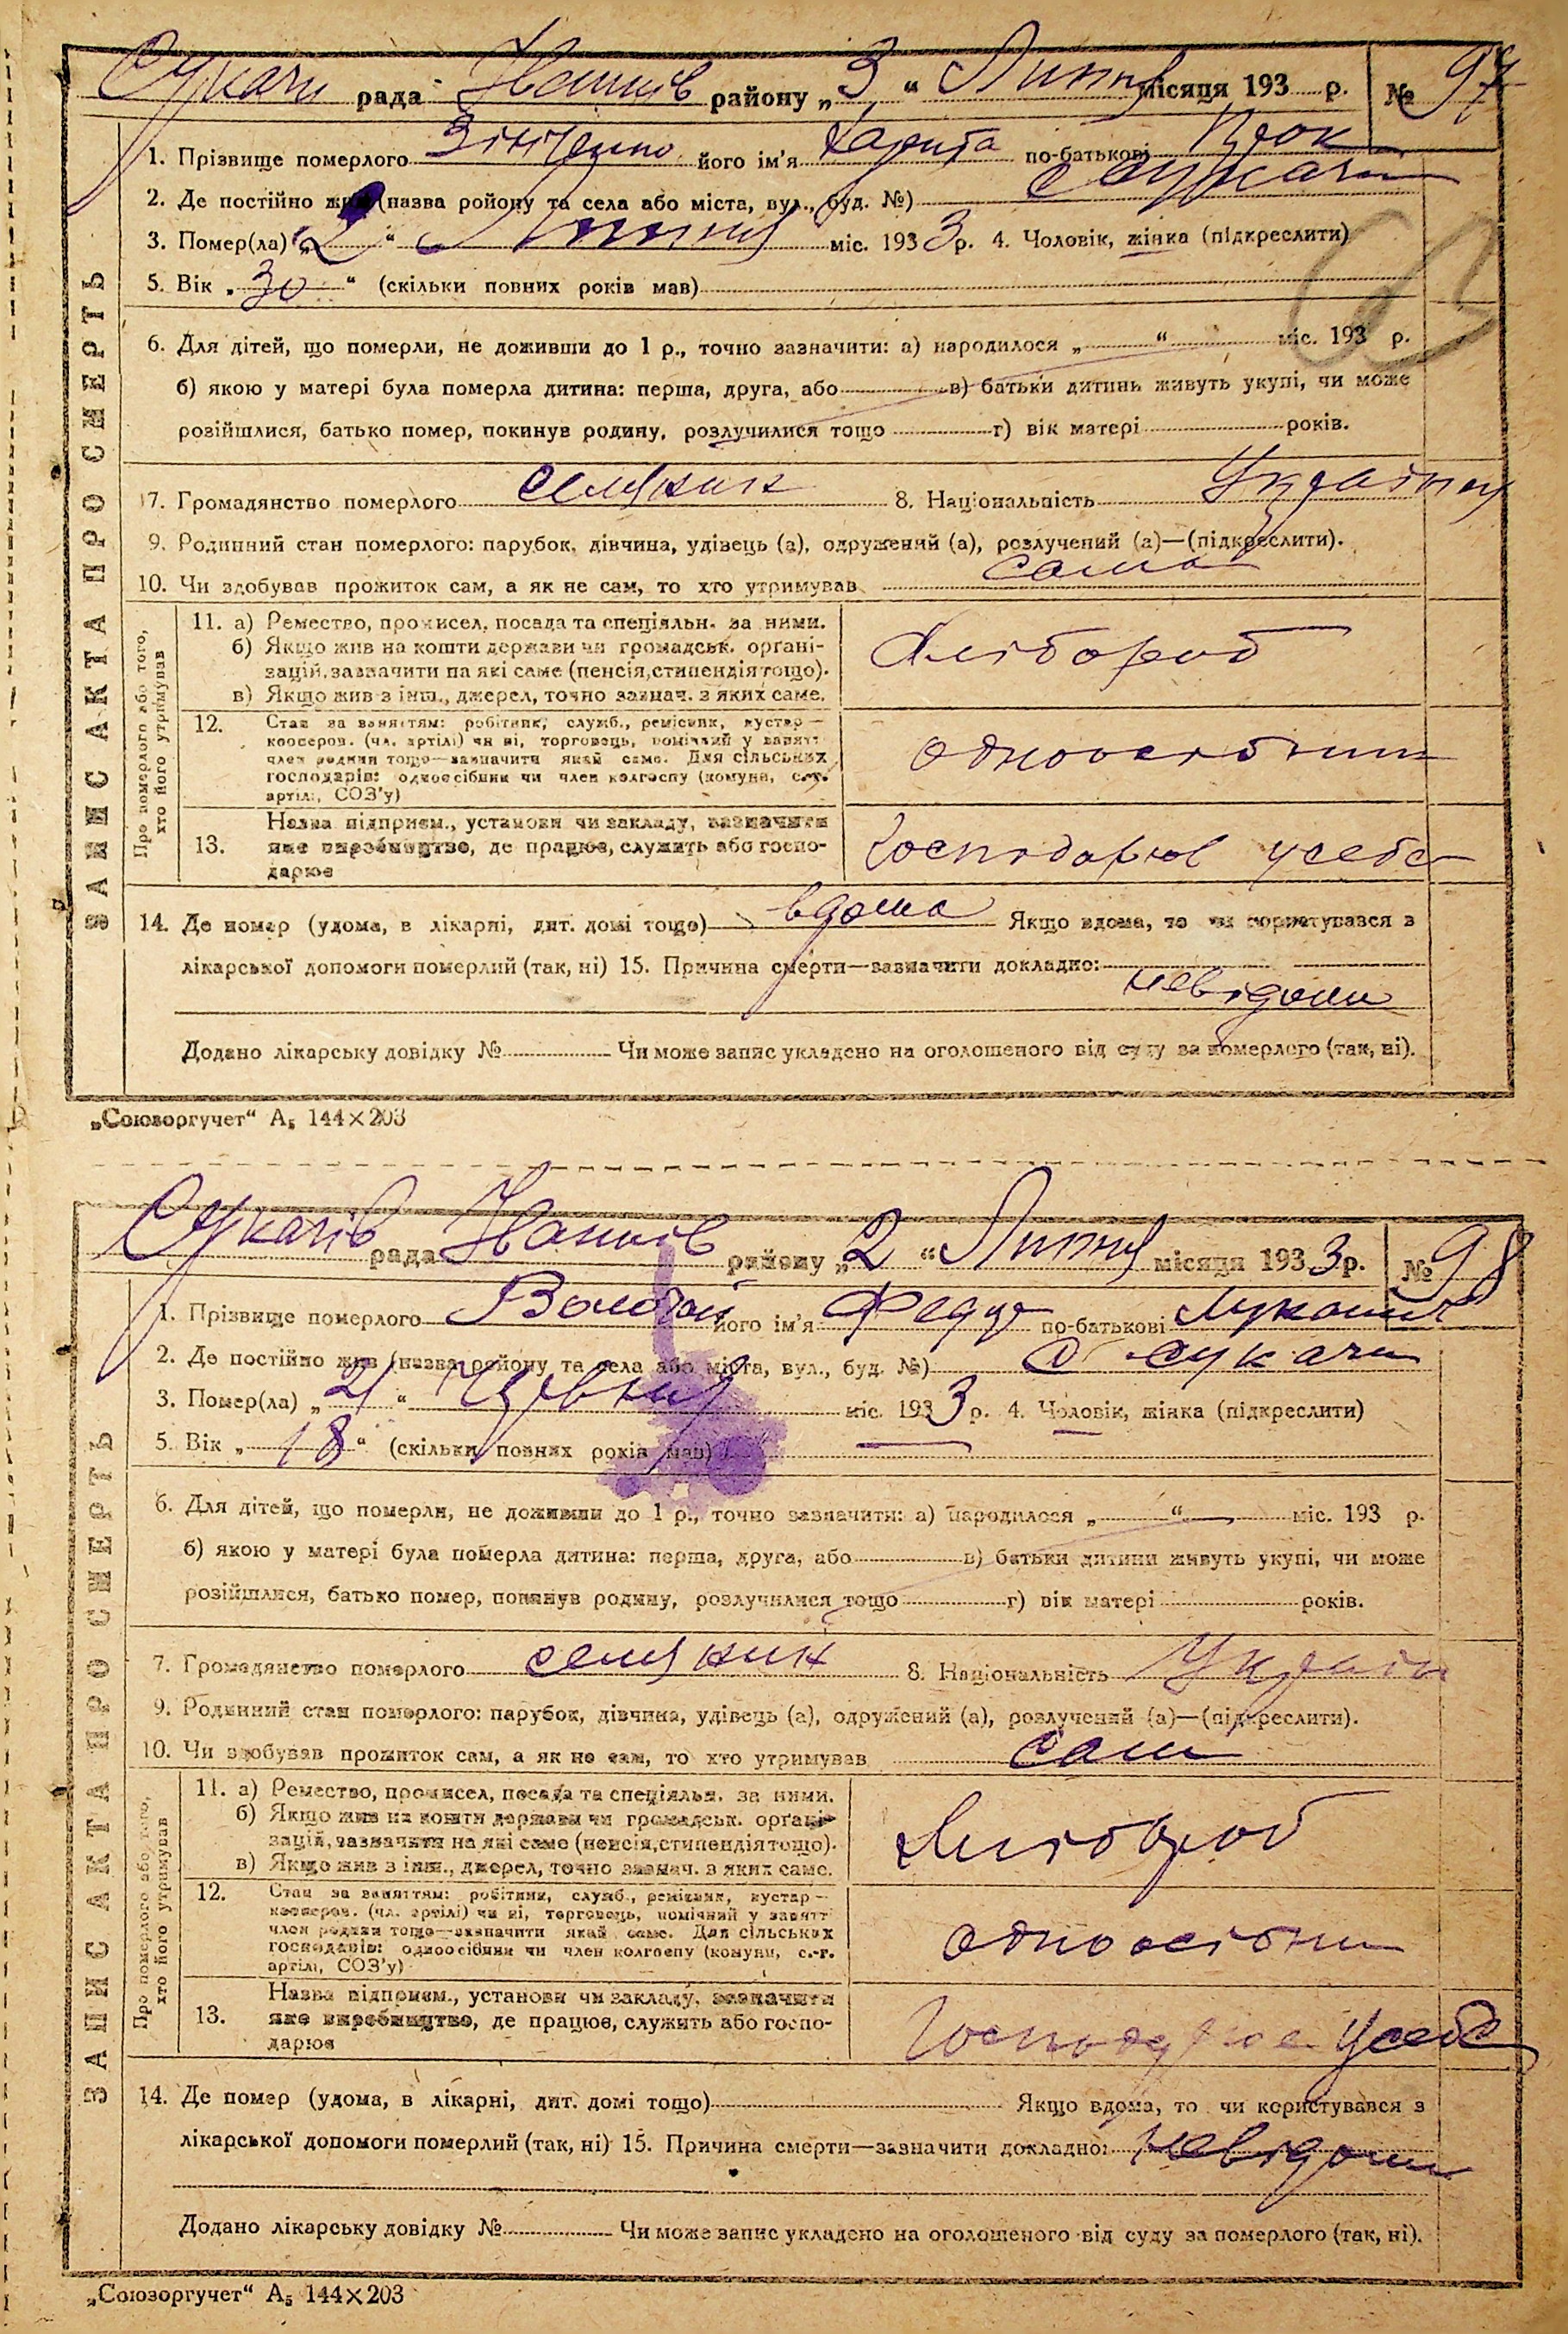 Сукачи рада Иванків району „3“ Липня місяця 193 р. № 97
1. Прізвище померлого його ім'я по-батькові Прок
2. Де постійно жив (назва ройону та села або міста, вул., буд. №) с Сукачи
3. Помер(ла) „2“ Липня міс. 1933 р. 4. Чоловік, жінка (підкреслити)
5. Вік „30“ (скільки повних років мав)
6. Для дітей, що померли, не доживши до 1 р., точно зазначити: а) народилося „ “ міс. 193 р.
б) якою у матері була померла дитина: перша, друга, або в) батьки дитинь живуть укупі, чи може
розійшлися, батько помер, покинув родину, розлучилися тощо г) вік матері років.
7. Громадянство померлого селянин 8. Національність
9. Родинний стан померлого: парубок, дівчина, удівець (а), одружений (а), розлучений (а)—(підкреслити).
10. Чи здобував прожиток сам, а як не сам, то хто утримував сама
ЗАПИС АКТА ПРО СМЕРТЬ
Про померлого або того, хто його утримував
11. а) Ремество, промисел, посада та спеціяльн. за ними.
б) Якщо жив на кошти держави чи громадськ. орґані-
зацій, зазначити на які саме (пенсія, стипендія тощо).
в) Якщо жив з інш., джерел, точно зазнач. з яких саме.
Хлібороб
12. Стан за заняттям: робітник, служб., ремісник, кустар—
коопеpов. (чл. артілі) чи ні, торговець, помічний у занятт
член родини тощо—зазначити який саме. Для сільських
господарів: одноосібник чи член колгоспу (комуни, с.-г.
артілі, СОЗ'у)
одноосібник
13. Назва підприєм., установи чи закладу, зазначити
яке виробництво, де працює, служить або госпо-
дарює
Господарює усебе
14. Де помер (удома, в лікарні, дит. домі тощо) вдома Якщо вдома, то чи користувався з
лікарської допомоги померлий (так, ні) 15. Причина смерти—зазначити докладно:
невідома
Додано лікарську довідку № Чи може запис укладено на оголошеного від суду за померлого (так, ні).
„Союзоргучет“ А₅ 144×203
Сукачів рада Иванків району „2“ Липня місяця 1933 р. № 98
1. Прізвище померлого його ім'я по-батькові
2. Де постійно жив (назва ройону та села або міста, вул., буд. №) с Сукачи
3. Помер(ла) „21“ Червня міс. 1933 р. 4. Чоловік, жінка (підкреслити)
5. Вік „18“ (скільки повних років мав)
6. Для дітей, що померли, не доживши до 1 р., точно зазначити: а) народилося „ “ міс. 193 р.
б) якою у матері була померла дитина: перша, друга, або в) батьки дитини живуть укупі, чи може
розійшлися, батько помер, покинув родину, розлучилися тощо г) вік матері років.
7. Громадянство померлого селянин 8. Національність
9. Родинний стан померлого: парубок, дівчина, удівець (а), одружений (а), розлучений (а)—(підкреслити).
10. Чи здобував прожиток сам, а як не сам, то хто утримував сам
ЗАПИС АКТА ПРО СМЕРТЬ
Про померлого або того, хто його утримував
11. а) Ремество, промисел, посада та спеціяльн. за ними.
б) Якщо жив на кошти держави чи громадськ. орґані-
зацій, зазначити на які саме (пенсія, стипендія тощо).
в) Якщо жив з інш., джерел, точно зазнач. з яких саме.
Хлібороб
12. Стан за заняттям: робітник, служб., ремісник, кустар—
кооперов. (чл. артілі) чи ні, торговець, помічний у занятт
член родини тощо—зазначити який саме. Для сільських
господарів: одноосібник чи член колгоспу (комуни, с.-г.
артілі, СОЗ'у)
одноосібник
13. Назва підприєм., установи чи закладу, зазначити
яке виробництво, де працює, служить або госпо-
дарює
Господарює усебе
14. Де помер (удома, в лікарні, дит. домі тощо) Якщо вдома, то чи користувався з
лікарської допомоги померлий (так, ні) 15. Причина смерти—зазначити докладно: невідома
Додано лікарську довідку № Чи може запис укладено на оголошеного від суду за померлого (так, ні).
„Союзоргучет“ А₅ 144×203